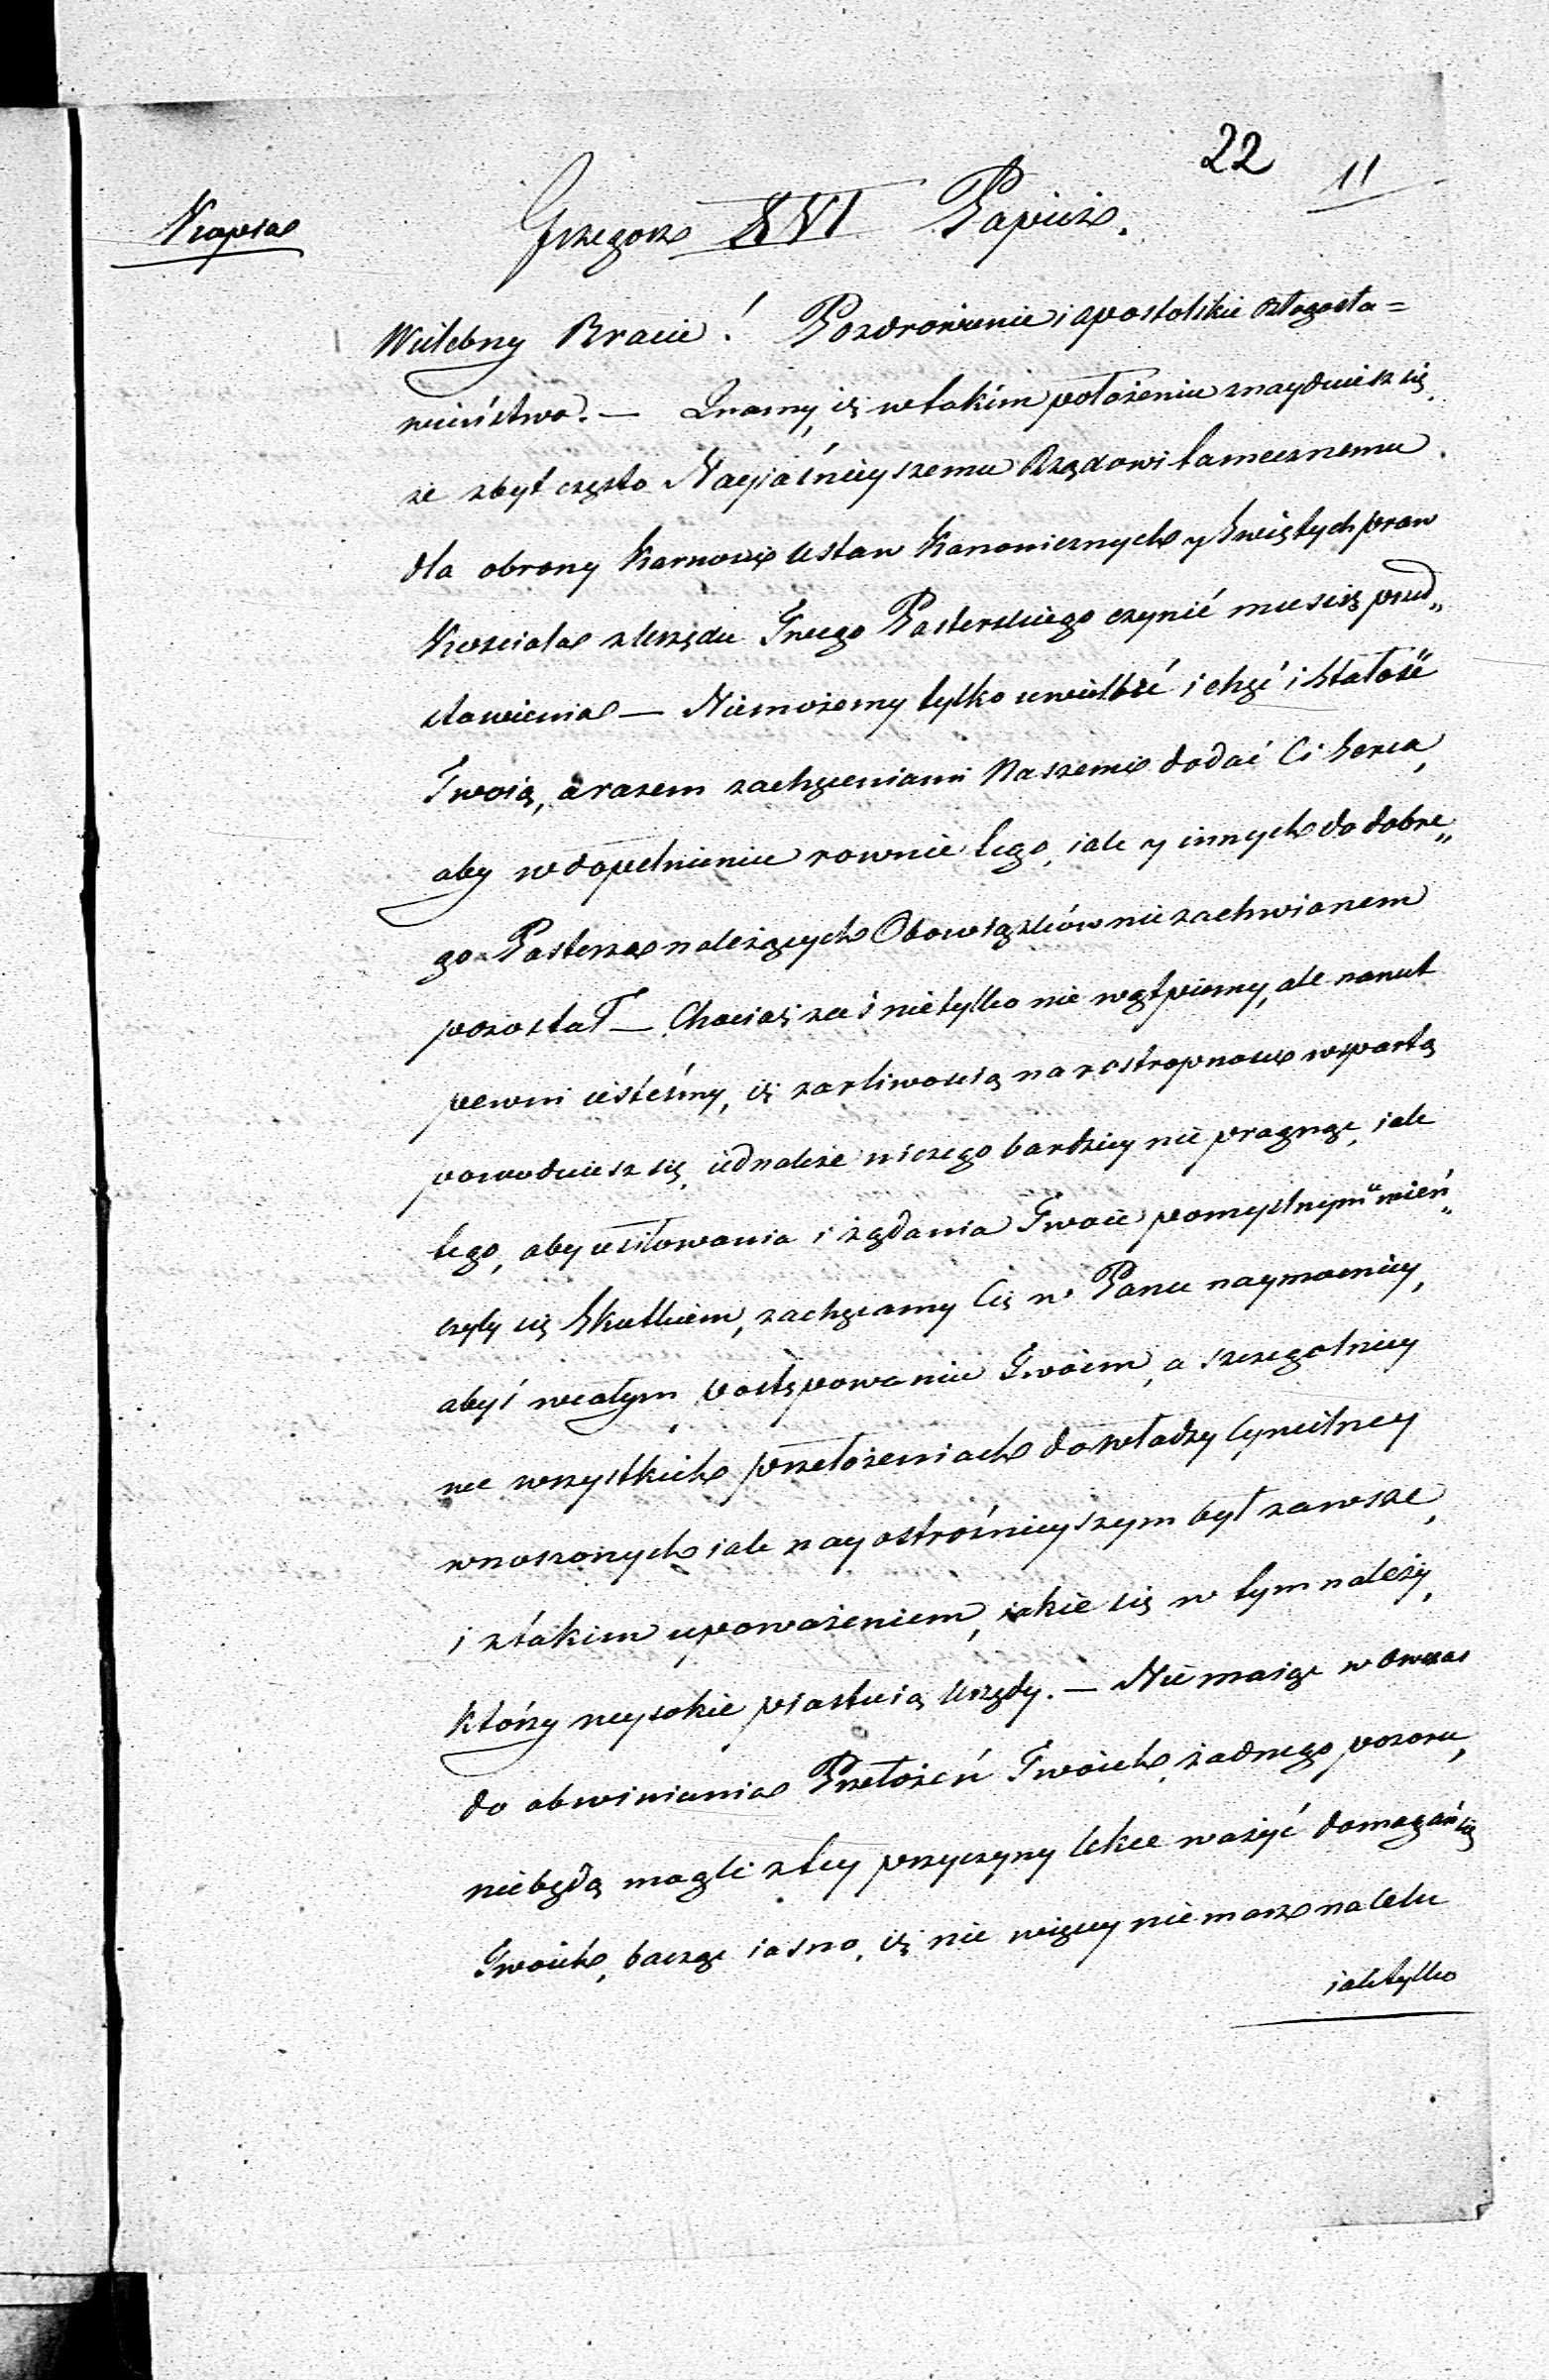 22
11
Kopia
Grzegorz XVI Papież.
Wielebny Bracie! Pozdrowienie i apostolskie błogosła=
wieństwo. — Znamy, iż w takim położeniu znayduiesz się,
że zbyt często Nayiaśnieyszemu Rządowi tamecznemu
dla obrony Karności Ustaw Kanonicznych y Swiętych praw
Kościoła z Urzędu Twego Pasterskiego czynić musisz przed„
stawienia — Niemożemy tylko uwielbić i chęć i Stałość
Twoią, a razem zachęceniami Naszemi dodać Ci Serca,
aby w dopełnieniu rownie tego, iak y innych do dobre„
go Pasterza należących Obowiązków niezachwianem
pozostał — Chociaż zaś nietylko nie wątpiemy, ale nawet
pewni iesteśmy, iż żarliwością na rostropności wspartą
powoduiesz się, iednakże niczego bardziey nie pragnąc, iak
tego, aby usiłowania i żądania Twoie pomyślnym wień„
czyły się Skutkiem, zachęcamy Cię w Panu naymocniey,
abyś w całym postępowaniu Twoiem, a szczegolniey
we wszystkich przełożeniach do władzy Cywilney
wnoszonych iak nayostrożnieyszym był zawsze,
i z takim upoważeniem, iakie się w tym należy,
którzy wysokie piastuią Urzędy. — Nie maiąc wowczas
do obwiniania Przełożeń Twoich, żadnego pozoru,
niebędą mogli z tey przyczyny lekce ważyć domagań się
Twoich, bacząc iasno, iż nic więcey nie masz na celu
iak tylko